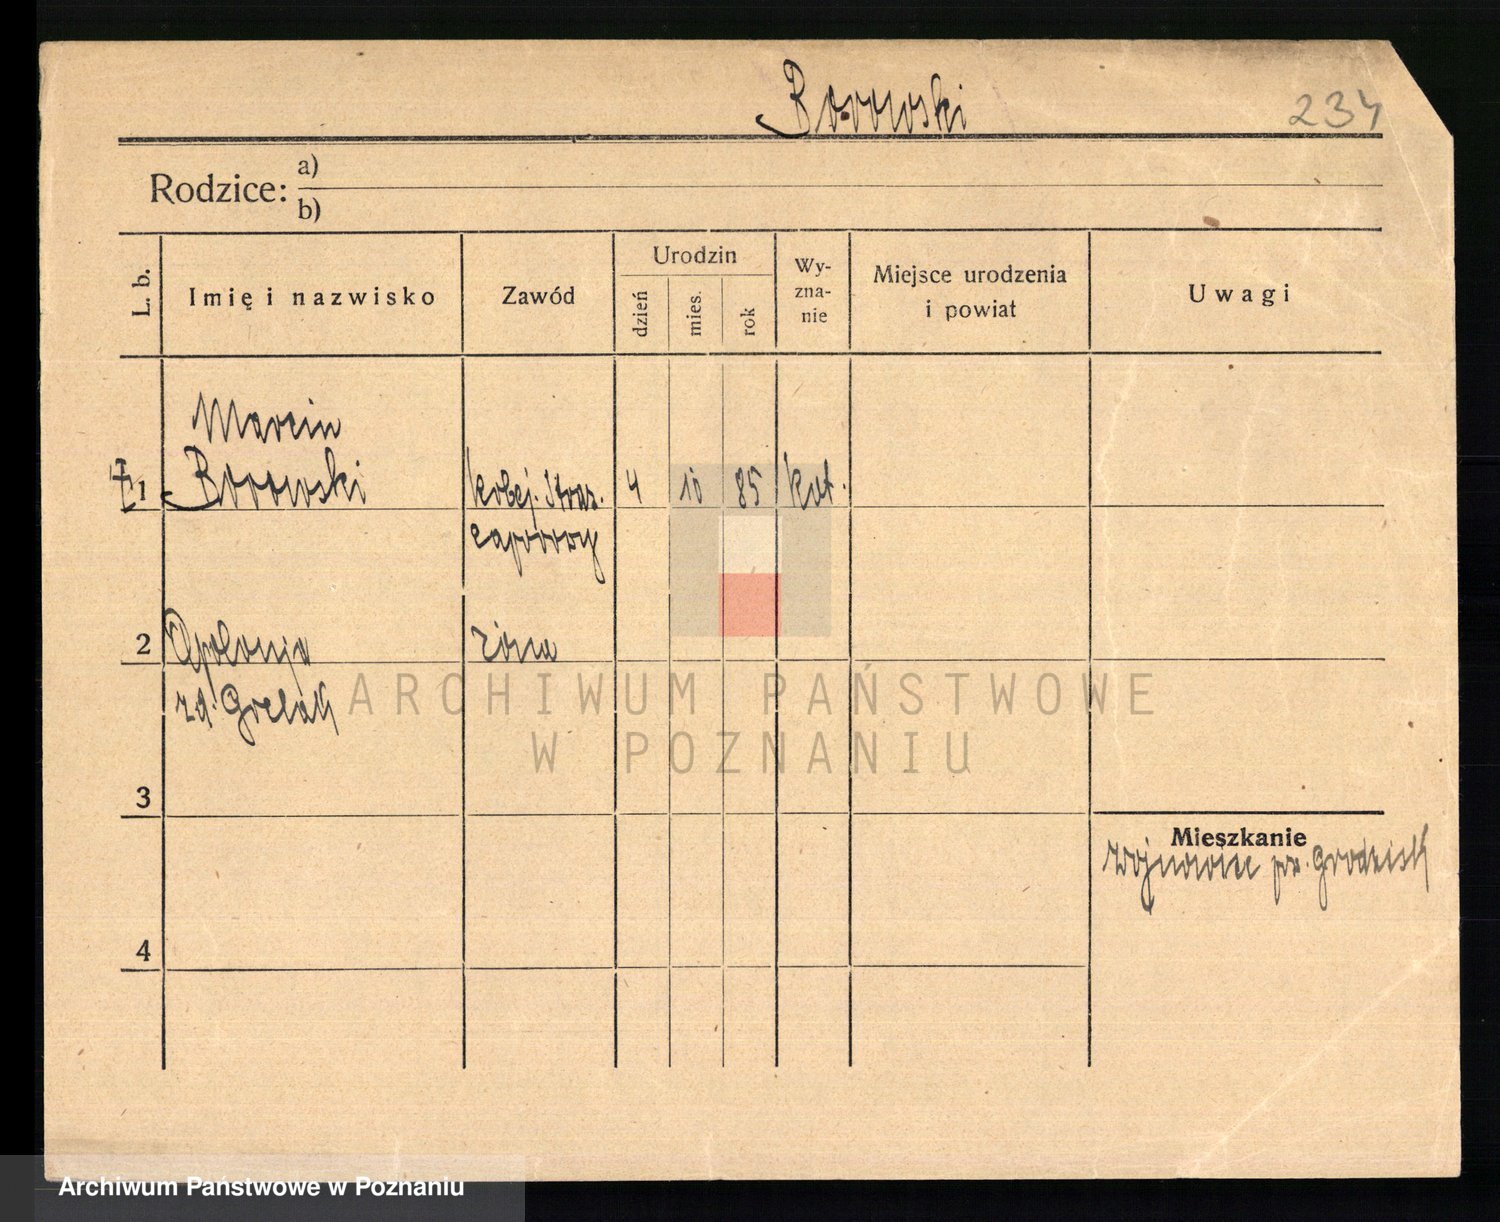 Borowski
234
Rodzice: a)
b)
L. b.
Imię i nazwisko
Zawód
Urodzin
dzień
mies.
rok
Wy-
zna-
nie
Miejsce urodzenia
i powiat
Uwagi
Marcin
1 Borowski kolej. Straż. 4 10 85 kat.
2 Apolonja żona
zd. Grelak
3
4
Mieszkanie
Wojnowice pw. Grodzisk
ARCHIWUM PAŃSTWOWE
W POZNANIU
Archiwum Państwowe w Poznaniu